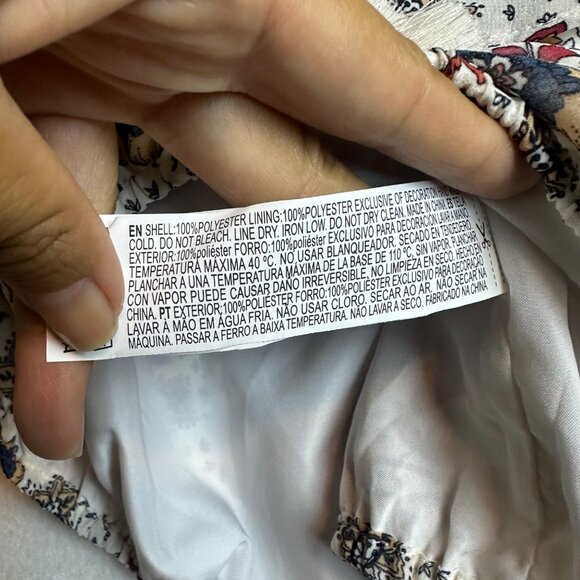 EN SHELL:100%POLYESTER LINING:100%POLYESTER EXCLUSIVE OF DECORATION
COLD. DO NOT BLEACH. LINE DRY. IRON LOW. DO NOT DRY CLEAN. MADE IN CHINA. ES TELA
EXTERIOR:100%poliéster FORRO:100%poliéster EXCLUSIVO PARA DECORACIÓN LAVAR A MANO
TEMPERATURA MÁXIMA 40 ºC. NO USAR BLANQUEADOR. SECADO EN TENDEDERO.
PLANCHAR A UNA TEMPERATURA MÁXIMA DE LA BASE DE 110 ºC, SIN VAPOR. PLANCHAR
CON VAPOR PUEDE CAUSAR DAÑO IRREVERSIBLE. NO LIMPIEZA EN SECO. HECHO EN
CHINA. PT EXTERIOR:100%POLIÉSTER FORRO:100%POLIÉSTER EXCLUSIVO DE DECORAÇÃO
LAVAR À MÃO EM ÁGUA FRIA. NÃO USAR CLORO. SECAR AO AR. NÃO SECAR NA
MÁQUINA. PASSAR A FERRO A BAIXA TEMPERATURA. NÃO LAVAR A SECO. FABRICADO NA CHINA